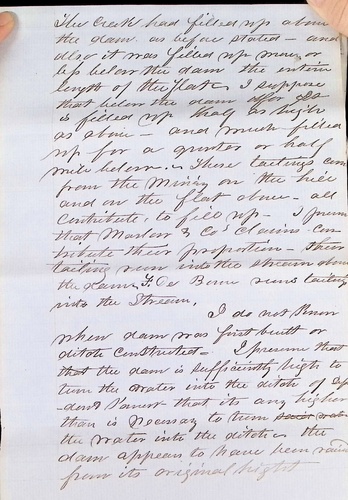 The Creek had filled up above
the dam as before stated - and
also it was filled up more or
less below the dam the entire
length of the flat. I suppose
that below the dam
is filled up half as high
as above - and much filled
up for a quarter or half
mile below. These tailings come
from the Mining on the hill
and on the flat above - all
contribute, to fill up - I presume
that & Co's Claims con-
tribute their proportion - their
tailing run into the stream above
the dam. runs tailing
into the Stream.
I do not Know
when dam was first built or
ditch constructed. I presume that
that the dam is sufficiently high to
turn the water into the ditch of
dont Know that its any higher
than is necessary to turn
the water into the ditch - the
dam appears to have been raised
from its original hight